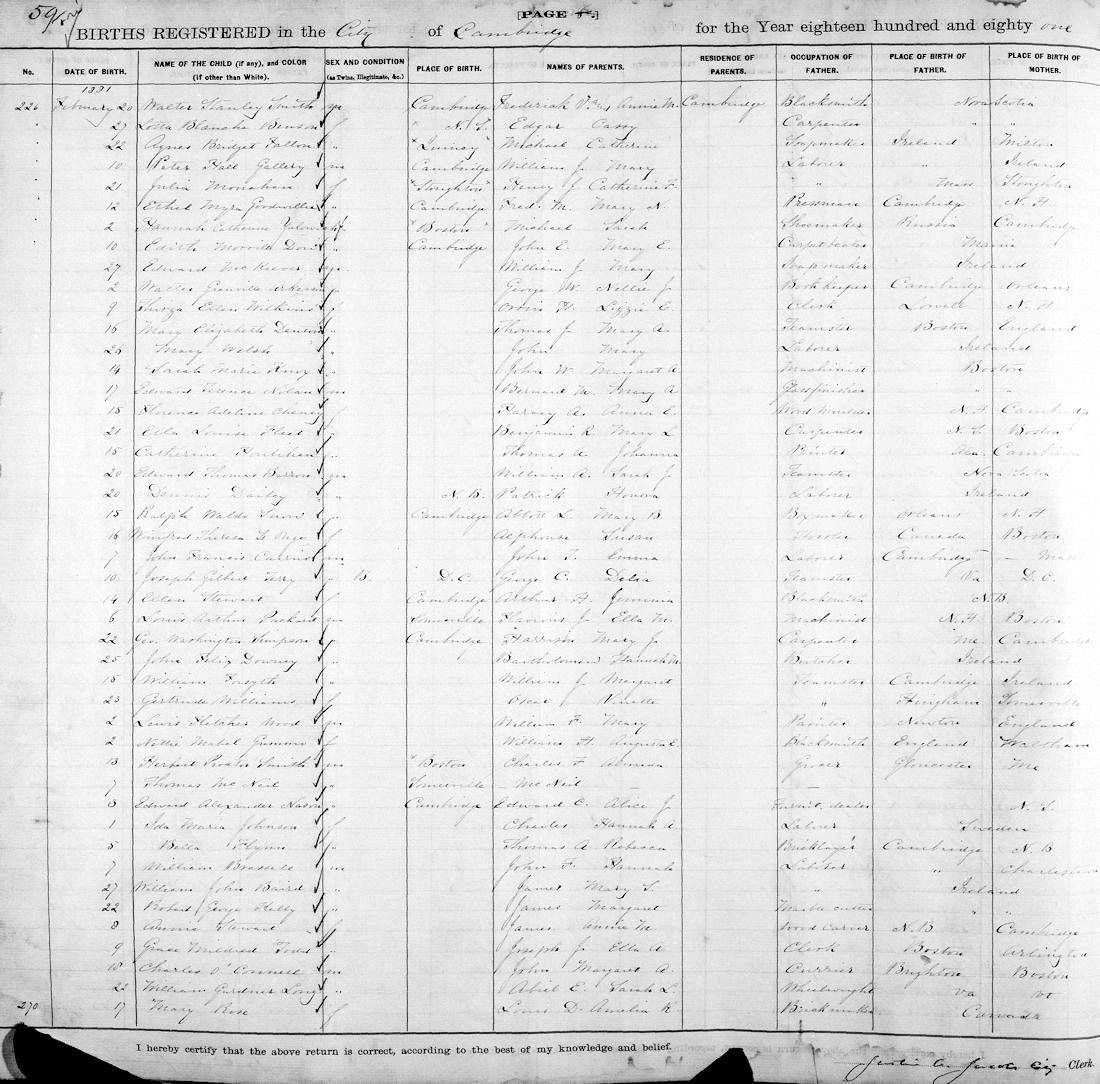 59
[PAGE
BIRTHS REGISTERED in the City of Cambridge for the Year eighteen hundred and eighty one
No. DATE OF BIRTH. NAME OF THE CHILD (if any), and COLOR (if other than White). SEX AND CONDITION (as Twins, Illegitimate, &c.) PLACE OF BIRTH. NAMES OF PARENTS. RESIDENCE OF PARENTS. OCCUPATION OF FATHER. PLACE OF BIRTH OF FATHER. PLACE OF BIRTH OF MOTHER.
1881
226 February 20 Walter Stanley Smith m Cambridge Frederick Annie M. Cambridge Blacksmith Nova Scotia
27 Lotta Blanche Benson f " N.S. Edgar Cassy Carpenter " "
22 Agnes Bridget Fallon " "Quincy" Michael Catherine Soapmaker Ireland Milton
10 Peter Hall Gallery m Cambridge William J. Mary Laborer " Ireland
21 Julia Monahan f "Stoughton" Henry J. Catherine F. " " Mass Stoughton
12 Ethel Myra " Cambridge Fred. M. Mary N. Pressman Cambridge N. H.
2 Hannah Catherine "Boston" Michael Sarah Shoemaker Russia Cambridge
10 Edith Morrill Dow " Cambridge John E. Mary E. Carpet beater Maine
27 Edward McKeever William J. Mary Soapmaker Ireland
2 Walter George W. Nellie J. Bookkeeper Cambridge Orleans
9 Thirza Ellen Wilkins f Orrin H. Lizzie E. Clerk Lowell N. H.
16 Mary Elizabeth " Thomas J. Mary A. Teamster Boston England
26 Mary Welsh " John Mary Laborer Ireland
14 Sarah Maria Knox " John W. Margaret A Machinist Boston
17 Edward Terence Nolan m Bernard M. Mary A. Glassfinisher "
15 Florence Adeline Cheney f Harvey A. Anna E. Wood N. H. Cambridge
21 Ella Louise Fleet " Benjamin R. Mary L Carpenter N. S. Boston
15 Catherine " Thomas A. Johanna Printer Cambridge
20 Edward Thomas Barron m William A. Sarah J. Teamster Nova Scotia
20 Dennis Dailey " N. B. Patrick Honora Laborer Ireland
15 Ralph Waldo Snow " Cambridge Abbott L. Mary B. Boxmaker Orleans N. H
16 Winifred Theresa Le Page f Alphonse Susan Canada Boston
7 John Francis m John T. Emma Laborer Cambridge — Mass
10 Joseph Gilbert Terry " B. D.C. George C. Delia Teamster Va D.C.
14 Allen Stewart Cambridge Arthur H. Jemima Blacksmith N.B.
6 Louis Arthur Packard m Somerville J. Ella M. Machinist N.H. Boston
22 Geo. Washington Simpson Cambridge Harrison Mary J. Carpenter Me Cambridge
25 John Felix Downey " Bartholomew Hannah M. Butcher Ireland
15 William Forsyth " William J. Margaret Teamster Cambridge Ireland
23 Gertrude Williams f Oscar Ninette " Hingham Somerville
2 Lewis Fletcher Wood m William F. Mary Painter Newton England
2 Nettie Mabel f William H. Augusta E. Blacksmith England Waltham
13 Herbert Smith m "Boston Charles F. Almeda Grocer Gloucester Me
7 Thomas McNeil " Somerville — McNeil — —
8 Edward Alexander Nason " Cambridge Edward C. Alice J Furnit. dealer N. S.
1 Ida Maria Johnson f Charles Hannah A. Laborer Sweden
5 Bella Flynn " Thomas A Rebecca Bricklayer Cambridge N. B
7 William m John F. Hannah Laborer " Charlestown
27 William John Baird " James Mary S. " Ireland
22 Robert George Kelly " James Margaret Marble cutter " "
8 Annie Steward f James Annie M. Wood Carver N. B. Cambridge
9 Grace Mildred Todd " Joseph J. Ella A Clerk Boston Arlington
10 Charles O'Connell m John Margaret A. Currier Brighton Boston
22 William Gardner Long " Abiel E. Sarah L. Wheelwright Va Vt
270 17 Mary Rose f Louis D. Amelia R. Brickmaker Canada
I hereby certify that the above return is correct, according to the best of my knowledge and belief.
City Clerk.